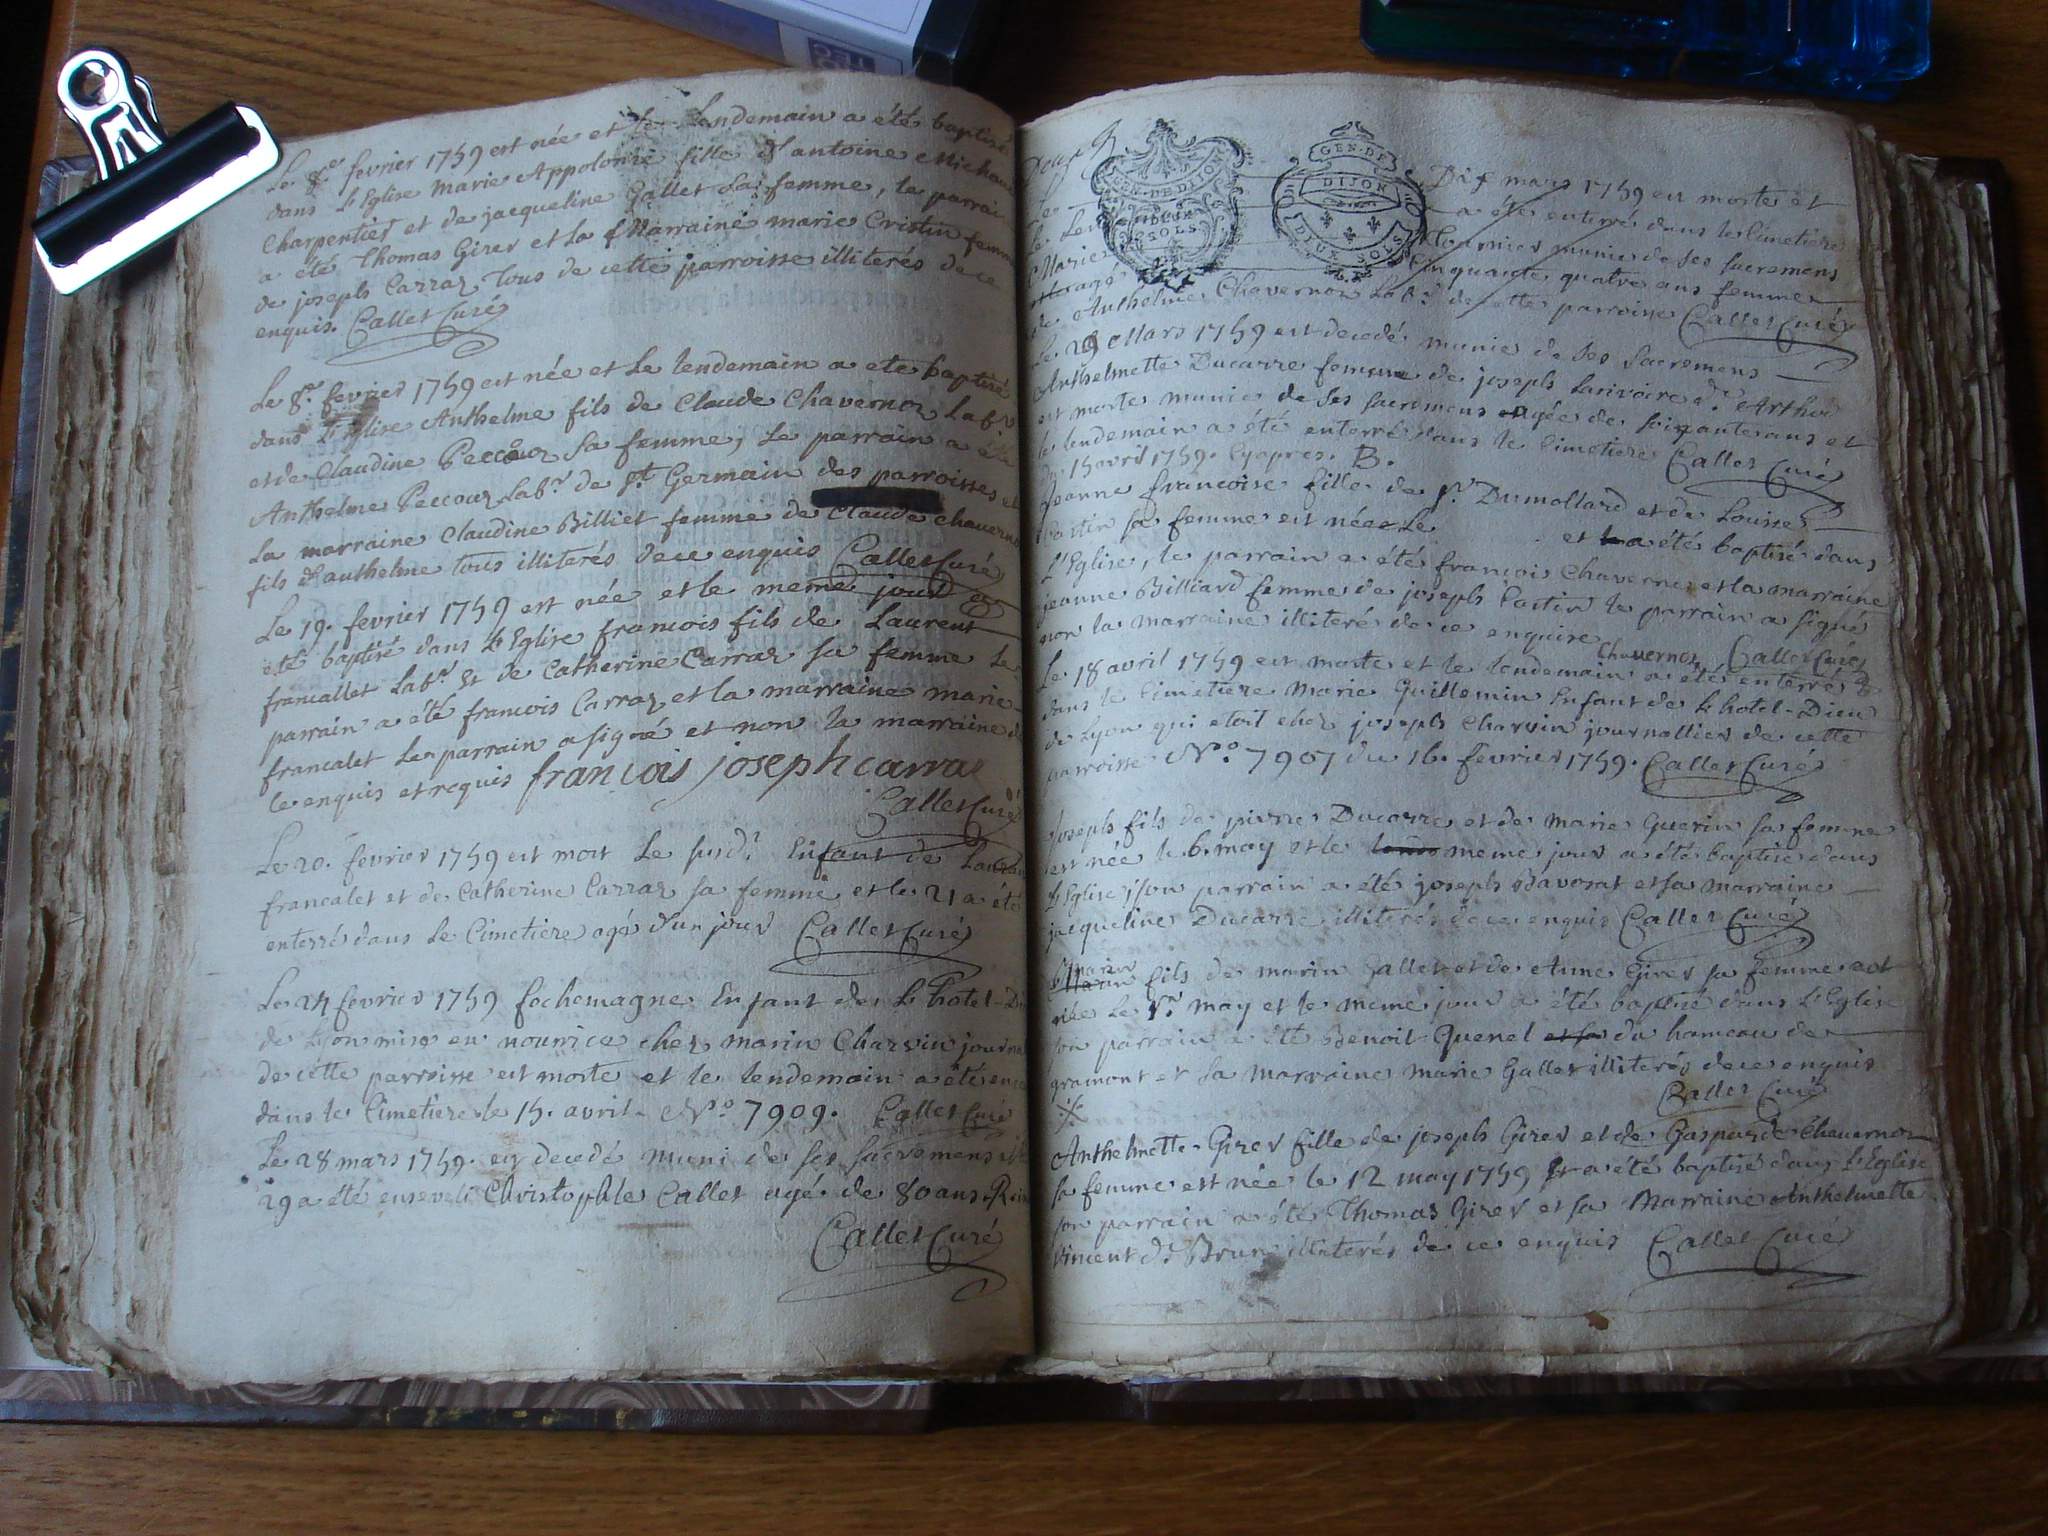 Le 8e fevrier 1759 est née et le Lendemain a été baptisé
dans L'Eglise Marie Appolonie fille d'antoine Michaux
Charpentier et de jacqueline Gallet Sa femme, le parrain
a été Thomas Girer et La Marraine marie Cristin femme
de joseph Carraz Tous de cette parroisse illiterés de ce
enquis. Callet Curé
Le 8e. fevrier 1759 est née et Le lendemain a ete baptisé
dans L'Eglise Anthelme fils de Claude Chavernoz Labr
et de Claudine Peccouz Sa femme, Le parrain a été
Anthelme Peccouz Labr. de St. Germain des parroisses et
La marraine Claudine Billiet femme de Claude Chavernoz
fils d'anthelme tous illiterés de ce enquis Callet Curé
Le 19. fevrier 1759 est née et le meme jour a
eté baptisé dans L'Eglise francois fils de Laurent
francallet Labr. Et de Catherine Carraz sa femme Le
parrain a été francois Carraz et la marraine marie
francalet Le parrain a signé et non la marraine de
le enquis et requis francois joseph carraz
Callet Curé
Le 20. fevrier 1759 est mort Le susd. Enfant de Laurent
francalet et de Catherine Carraz sa femme et le 21 a été
enterré dans Le Cimetiere agé d'un jour Callet Curé
Le 24 fevrier 1759 fochemagne Enfant de L'hotel-Di
de Lyon mise en nourrice chez marin Charvin journa
de cette parroisse est morte et le lendemain a été en
dans le Cimetiere le 15. avril. No. 7909. Callet Curé
Le 28 mars 1759. est decedé muni de ses Sacremens et le
29 a été enseveli Christophle Callet agé de 80 ans
Callet Curé
GEN. DE DIJON
SOLS
GEN. DE
DIJON
DEUX SOLS
Dix mars 1759 est morte et
Le Len a été enterré dans le Cimetiere
Marie Tournier munie de ses Sacremens
agé Cinquante quatre ans femme
de Anthelme Chavernoz Labr. de cette parroisse Callet Curé
Le 29 Mars 1759 est decedé munie de ses Sacremens
Anthelmette Ducarre femme de joseph Larivoire d. Arthur
est morte munie de ses sacremens agée de soixante ans et
le lendemain a été enterré dans le Cimetiere Callet Curé
du 15 avril 1759. Cyapres. B.
Jeanne francoise fille de Sr. Dumollard et de Louise
sa femme est née Le et a été baptisé dans
L'Eglise, le parrain a été francois Chavernoz et la marraine
jeanne Billiard femme de joseph le parrain a signé
non la marraine illiteré de ce enquise Chavernoz Callet Curé
Le 18 avril 1759 est morte et le lendemain a été enterré
dans le Cimetiere Marie Guillemin Enfant de L'hotel-Dieu
de Lyon qui etoit chez joseph Charvin journallier de cette
parroisse No. 7907 du 16. fevrier 1759. Callet Curé
Joseph fils de pierre Ducarre et de marie Guerin sa femme
est née le 6. may et le meme jour a été baptisé dans
L'Eglise, son parrain a été joseph Bavorat et sa marraine
jacqueline Ducarre illiterés de ce enquis Callet Curé
Marin fils de marin Gallet et de Anne Girer sa femme est
née Le may et le meme jour a été baptisé dans L'Eglise
son parrain a été Benoit Quenel et sa du hameau de
gramont et sa Marraine marie Gallet illiterés de ce enquis
Callet Curé
Anthelmette Girer fille de joseph Girer et de Gasparde Chavernoz
sa femme est née le 12 may 1759 et a été baptisé dans L'Eglise
son parrain a été Thomas Girer et sa Marraine Anthelmette
Vincent de Brun illiterés de ce enquis Callet Curé